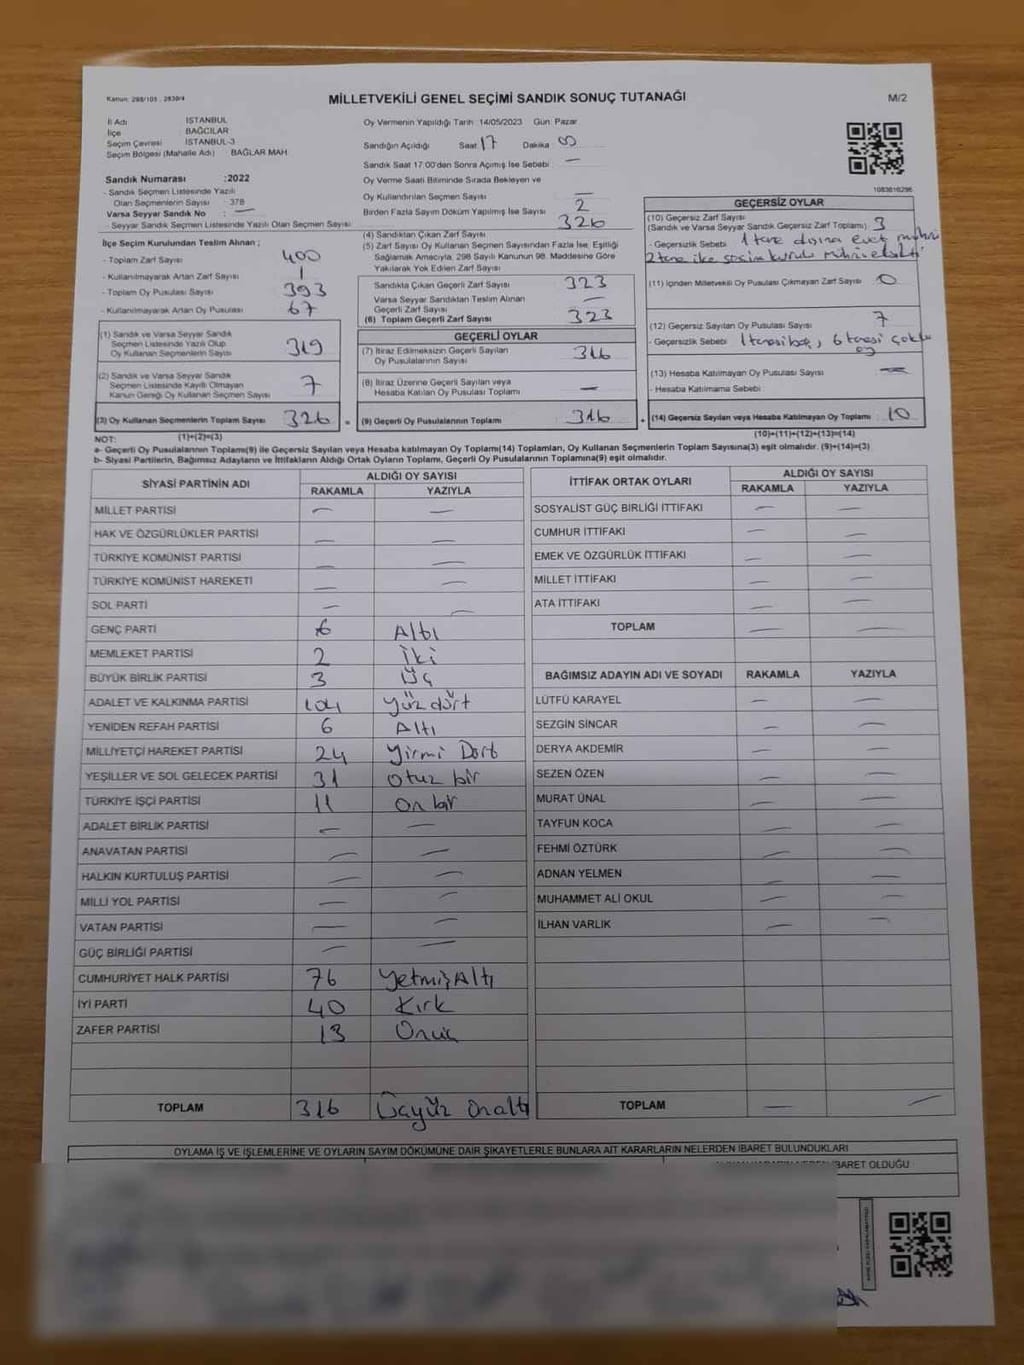 Kanun: 298/105 , 2839/4
MİLLETVEKİLİ GENEL SEÇİMİ SANDIK SONUÇ TUTANAĞI
M/2
İl Adı İSTANBUL
İlçe BAĞCILAR
Seçim Çevresi İSTANBUL-3
Seçim Bölgesi (Mahalle Adı) BAĞLAR MAH.
Oy Vermenin Yapıldığı Tarih: 14/05/2023 Gün: Pazar
Sandığın Açıldığı Saat 17 Dakika 00
Sandık Saat 17:00'den Sonra Açımış İse Sebebi —
Oy Verme Saati Bitiminde Sırada Bekleyen ve
Oy Kullandırılan Seçmen Sayısı —
Birden Fazla Sayım Döküm Yapılmış İse Sayısı 2
Sandık Numarası :2022
- Sandık Seçmen Listesinde Yazılı
Olan Seçmenlerin Sayısı 378
Varsa Seyyar Sandık No : —
- Seyyar Sandık Seçmen Listesinde Yazılı Olan Seçmen Sayısı:
İlçe Seçim Kurulundan Teslim Alınan ;
- Toplam Zarf Sayısı 400
- Kullanılmayarak Artan Zarf Sayısı 1
- Toplam Oy Pusulası Sayısı 393
- Kullanılmayarak Artan Oy Pusulası 67
(1) Sandık ve Varsa Seyyar Sandık
Seçmen Listesinde Yazılı Olup
Oy Kullanan Seçmenlerin Sayısı 319
(2) Sandık ve Varsa Seyyar Sandık
Seçmen Listesinde Kayıtlı Olmayan
Kanun Gereği Oy Kullanan Seçmen Sayısı 7
(3) Oy Kullanan Seçmenlerin Toplam Sayısı 326
(4) Sandıktan Çıkan Zarf Sayısı 326
(5) Zarf Sayısı Oy Kullanan Seçmen Sayısından Fazla İse, Eşitliği
Sağlamak Amacıyla, 298 Sayılı Kanunun 98. Maddesine Göre
Yakılarak Yok Edilen Zarf Sayısı
Sandıkta Çıkan Geçerli Zarf Sayısı 323
Varsa Seyyar Sandıktan Teslim Alınan
Geçerli Zarf Sayısı —
(6) Toplam Geçerli Zarf Sayısı 323
GEÇERLİ OYLAR
(7) İtiraz Edilmeksizin Geçerli Sayılan
Oy Pusulalarının Sayısı 316
(8) İtiraz Üzerine Geçerli Sayılan veya
Hesaba Katılan Oy Pusulası Toplamı —
= (9) Geçerli Oy Pusulalarının Toplamı 316
1083810296
GEÇERSİZ OYLAR
(10) Geçersiz Zarf Sayısı
(Sandık ve Varsa Seyyar Sandık Geçersiz Zarf Toplamı) 3
- Geçersizlik Sebebi 1 tane dışına evet mührü
2 tane ilçe seçim kurulu mührü eksikti
(11) İçinden Milletvekili Oy Pusulası Çıkmayan Zarf Sayısı 0
(12) Geçersiz Sayılan Oy Pusulası Sayısı 7
- Geçersizlik Sebebi 1 tanesi boş, 6 tanesi çoklu
oy
(13) Hesaba Katılmayan Oy Pusulası Sayısı —
- Hesaba Katılmama Sebebi
+ (14) Geçersiz Sayılan veya Hesaba Katılmayan Oy Toplamı : 10
NOT: (1)+(2)=(3) (10)+(11)+(12)+(13)=(14)
a- Geçerli Oy Pusulalarının Toplamı(9) ile Geçersiz Sayılan veya Hesaba katılmayan Oy Toplamı(14) Toplamları, Oy Kullanan Seçmenlerin Toplam Sayısına(3) eşit olmalıdır. (9)+(14)=(3)
b- Siyasi Partilerin, Bağımsız Adayların ve İttifakların Aldığı Ortak Oyların Toplamı, Geçerli Oy Pusulalarının Toplamına(9) eşit olmalıdır.
SİYASİ PARTİNİN ADI ALDIĞI OY SAYISI
RAKAMLA YAZIYLA
MİLLET PARTİSİ — —
HAK VE ÖZGÜRLÜKLER PARTİSİ — —
TÜRKİYE KOMÜNİST PARTİSİ — —
TÜRKİYE KOMÜNİST HAREKETİ — —
SOL PARTİ — —
GENÇ PARTİ 6 Altı
MEMLEKET PARTİSİ 2 İki
BÜYÜK BİRLİK PARTİSİ 3 Üç
ADALET VE KALKINMA PARTİSİ 104 yüzdört
YENİDEN REFAH PARTİSİ 6 Altı
MİLLİYETÇİ HAREKET PARTİSİ 24 yirmi Dört
YEŞİLLER VE SOL GELECEK PARTİSİ 31 otuz bir
TÜRKİYE İŞÇİ PARTİSİ 11 on bir
ADALET BİRLİK PARTİSİ — —
ANAVATAN PARTİSİ — —
HALKIN KURTULUŞ PARTİSİ — —
MİLLİ YOL PARTİSİ — —
VATAN PARTİSİ — —
GÜÇ BİRLİĞİ PARTİSİ — —
CUMHURİYET HALK PARTİSİ 76 YetmişAltı
İYİ PARTİ 40 Kırk
ZAFER PARTİSİ 13 Onüç
TOPLAM 316 Üçyüz Onaltı
İTTİFAK ORTAK OYLARI ALDIĞI OY SAYISI
RAKAMLA YAZIYLA
SOSYALİST GÜÇ BİRLİĞİ İTTİFAKI — —
CUMHUR İTTİFAKI — —
EMEK VE ÖZGÜRLÜK İTTİFAKI — —
MİLLET İTTİFAKI — —
ATA İTTİFAKI — —
TOPLAM — —
BAĞIMSIZ ADAYIN ADI VE SOYADI RAKAMLA YAZIYLA
LÜTFÜ KARAYEL — —
SEZGİN SİNCAR — —
DERYA AKDEMİR — —
SEZEN ÖZEN — —
MURAT ÜNAL — —
TAYFUN KOCA — —
FEHMİ ÖZTÜRK — —
ADNAN YELMEN — —
MUHAMMET ALİ OKUL — —
İLHAN VARLIK — —
TOPLAM — —
OYLAMA İŞ VE İŞLEMLERİNE VE OYLARIN SAYIM DÖKÜMÜNE DAİR ŞİKAYETLERLE BUNLARA AİT KARARLARIN NELERDEN İBARET BULUNDUKLARI
İBARET OLDUĞU